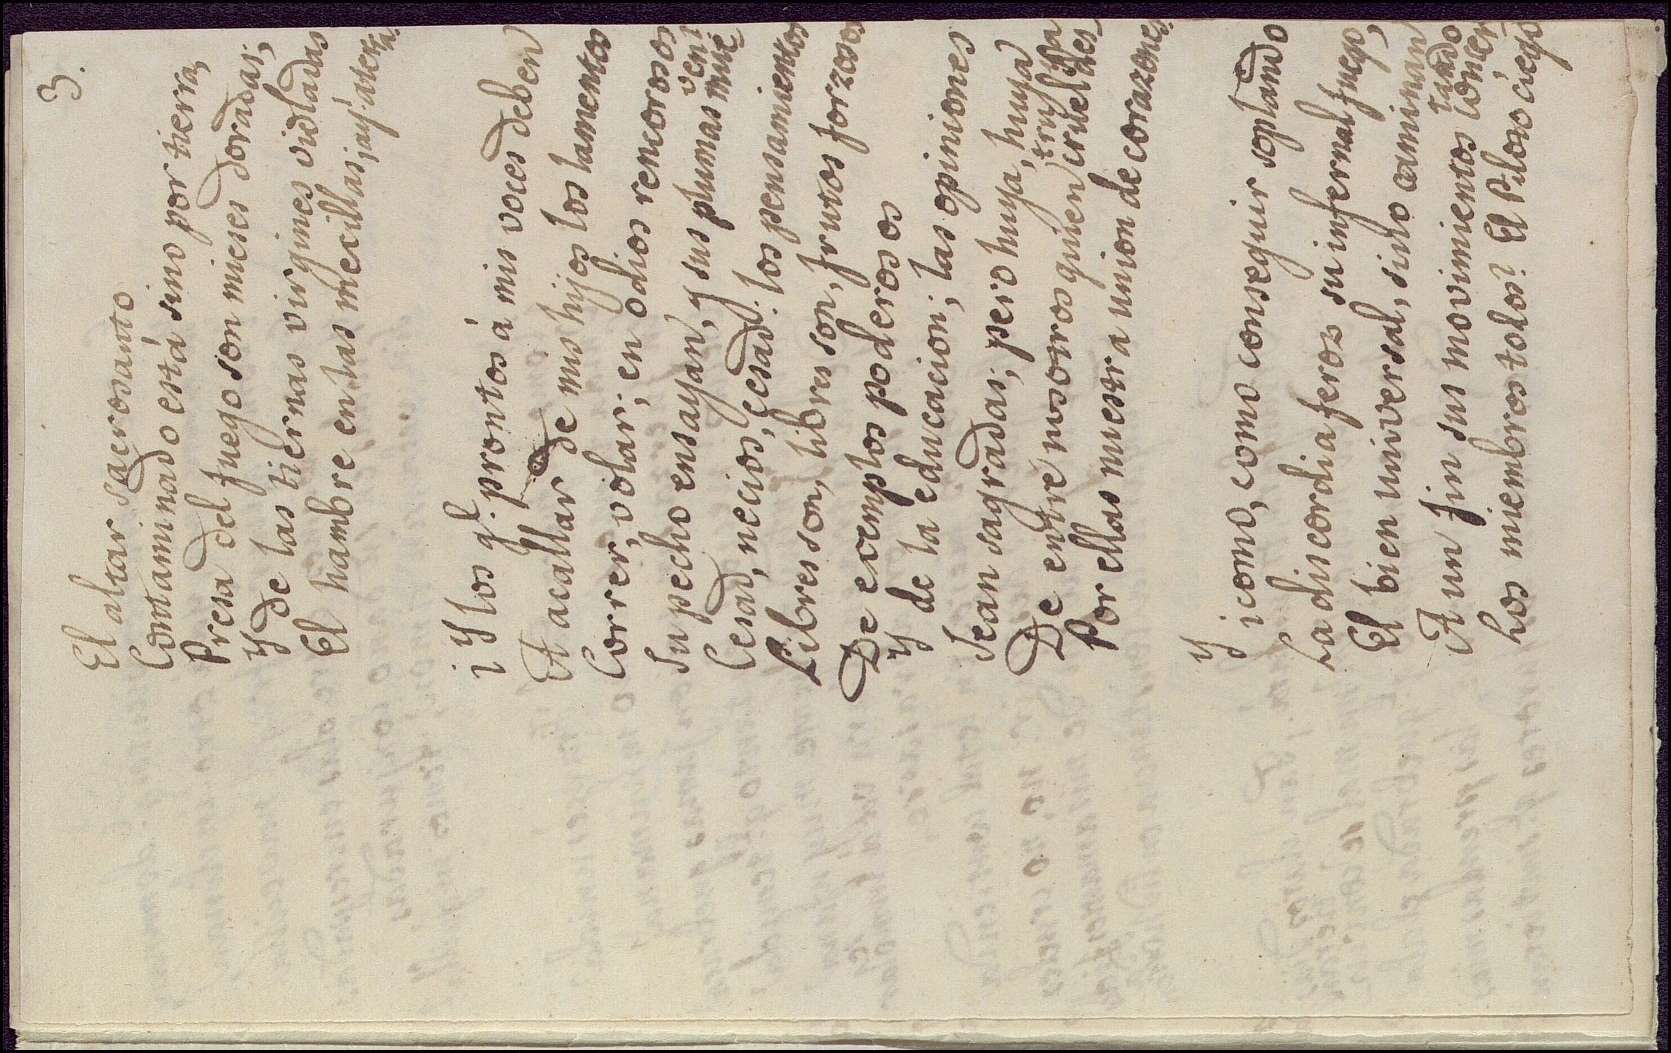 3.
El altar sacrosanto
Contaminado está sino por tierra,
Presa del fuego son mieses doradas;
Y de las tiernas virgines violadas
El hambre en las mecillas ¡ay! aterra.
¡Y los q.e prontos á mis voces deben
A acallar de mis hijos los lamentos
Correr, volar; en odios rencorosos
Su pecho ensayan, y sus plumas mue
ven!
Cesad, necios, cesad: los pensamientos
Libres son, libres son, frutos forzosos
De exemplos poderosos
Y de la educacion; las opiniones
Sean sagradas; pero huya, huya
De entre nosotros quien cruel des
truya
Por ellas nuestra union de corazones.
Y ¿como, como conseguir soplando
La discordia feros su infernal fuego,
El bien universal, si no caminan
A un fin sus movimientos concer
tando
Los miembros todos? El Piloto ciego